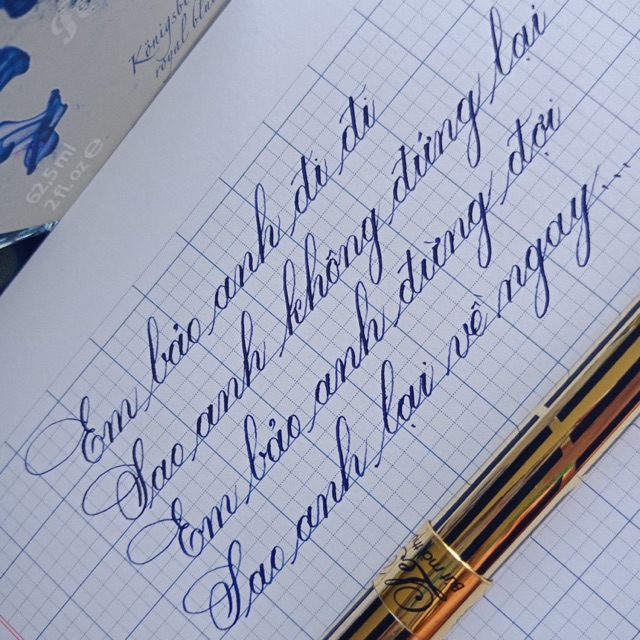 Königsb
royal blu
62.5ml
2 fl. oz
Em bảo anh đi đi
Sao anh không đứng lại
Em bảo anh đừng đợi
Sao anh lại về ngay...